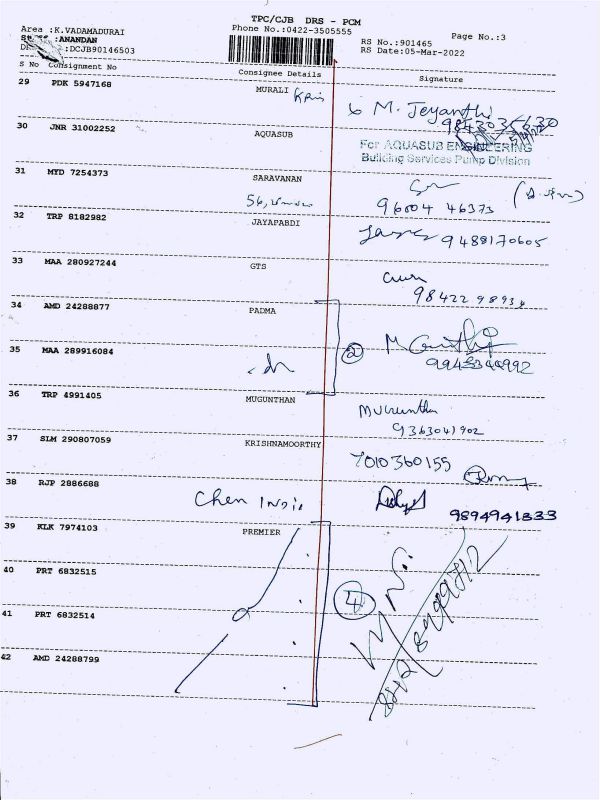 TPC/CJB DRS - PCM
Area :K.VADAMADURAI
Phone No.:0422-3505555
Page No.:3
:ANANDAN
RS No.:901465
:DCJB90146503
RS Date:05-Mar-2022
S No Consignment No Consignee Details Signature
29 PDK 5947168 MURALI
M. Jeyanthi
30 JNR 31002252 AQUASUB
For AQUASUB ENGINEERING
Building Services Pump Division
31 MYD 7254373 SARAVANAN
56,
96004 46373
32 TRP 8182982 JAYAPABDI
9488170605
33 MAA 280927244 GTS
98422 98934
34 AMD 24288877 PADMA
2
35 MAA 289916084
9943344992
36 TRP 4991405 MUGUNTHAN
Mugunthan
9363041902
37 SLM 290807059 KRISHNAMOORTHY
7010360155
38 RJP 2886688
Chen India
9894941333
39 KLK 7974103 PREMIER
40 PRT 6832515
4
41 PRT 6832514
42 AMD 24288799